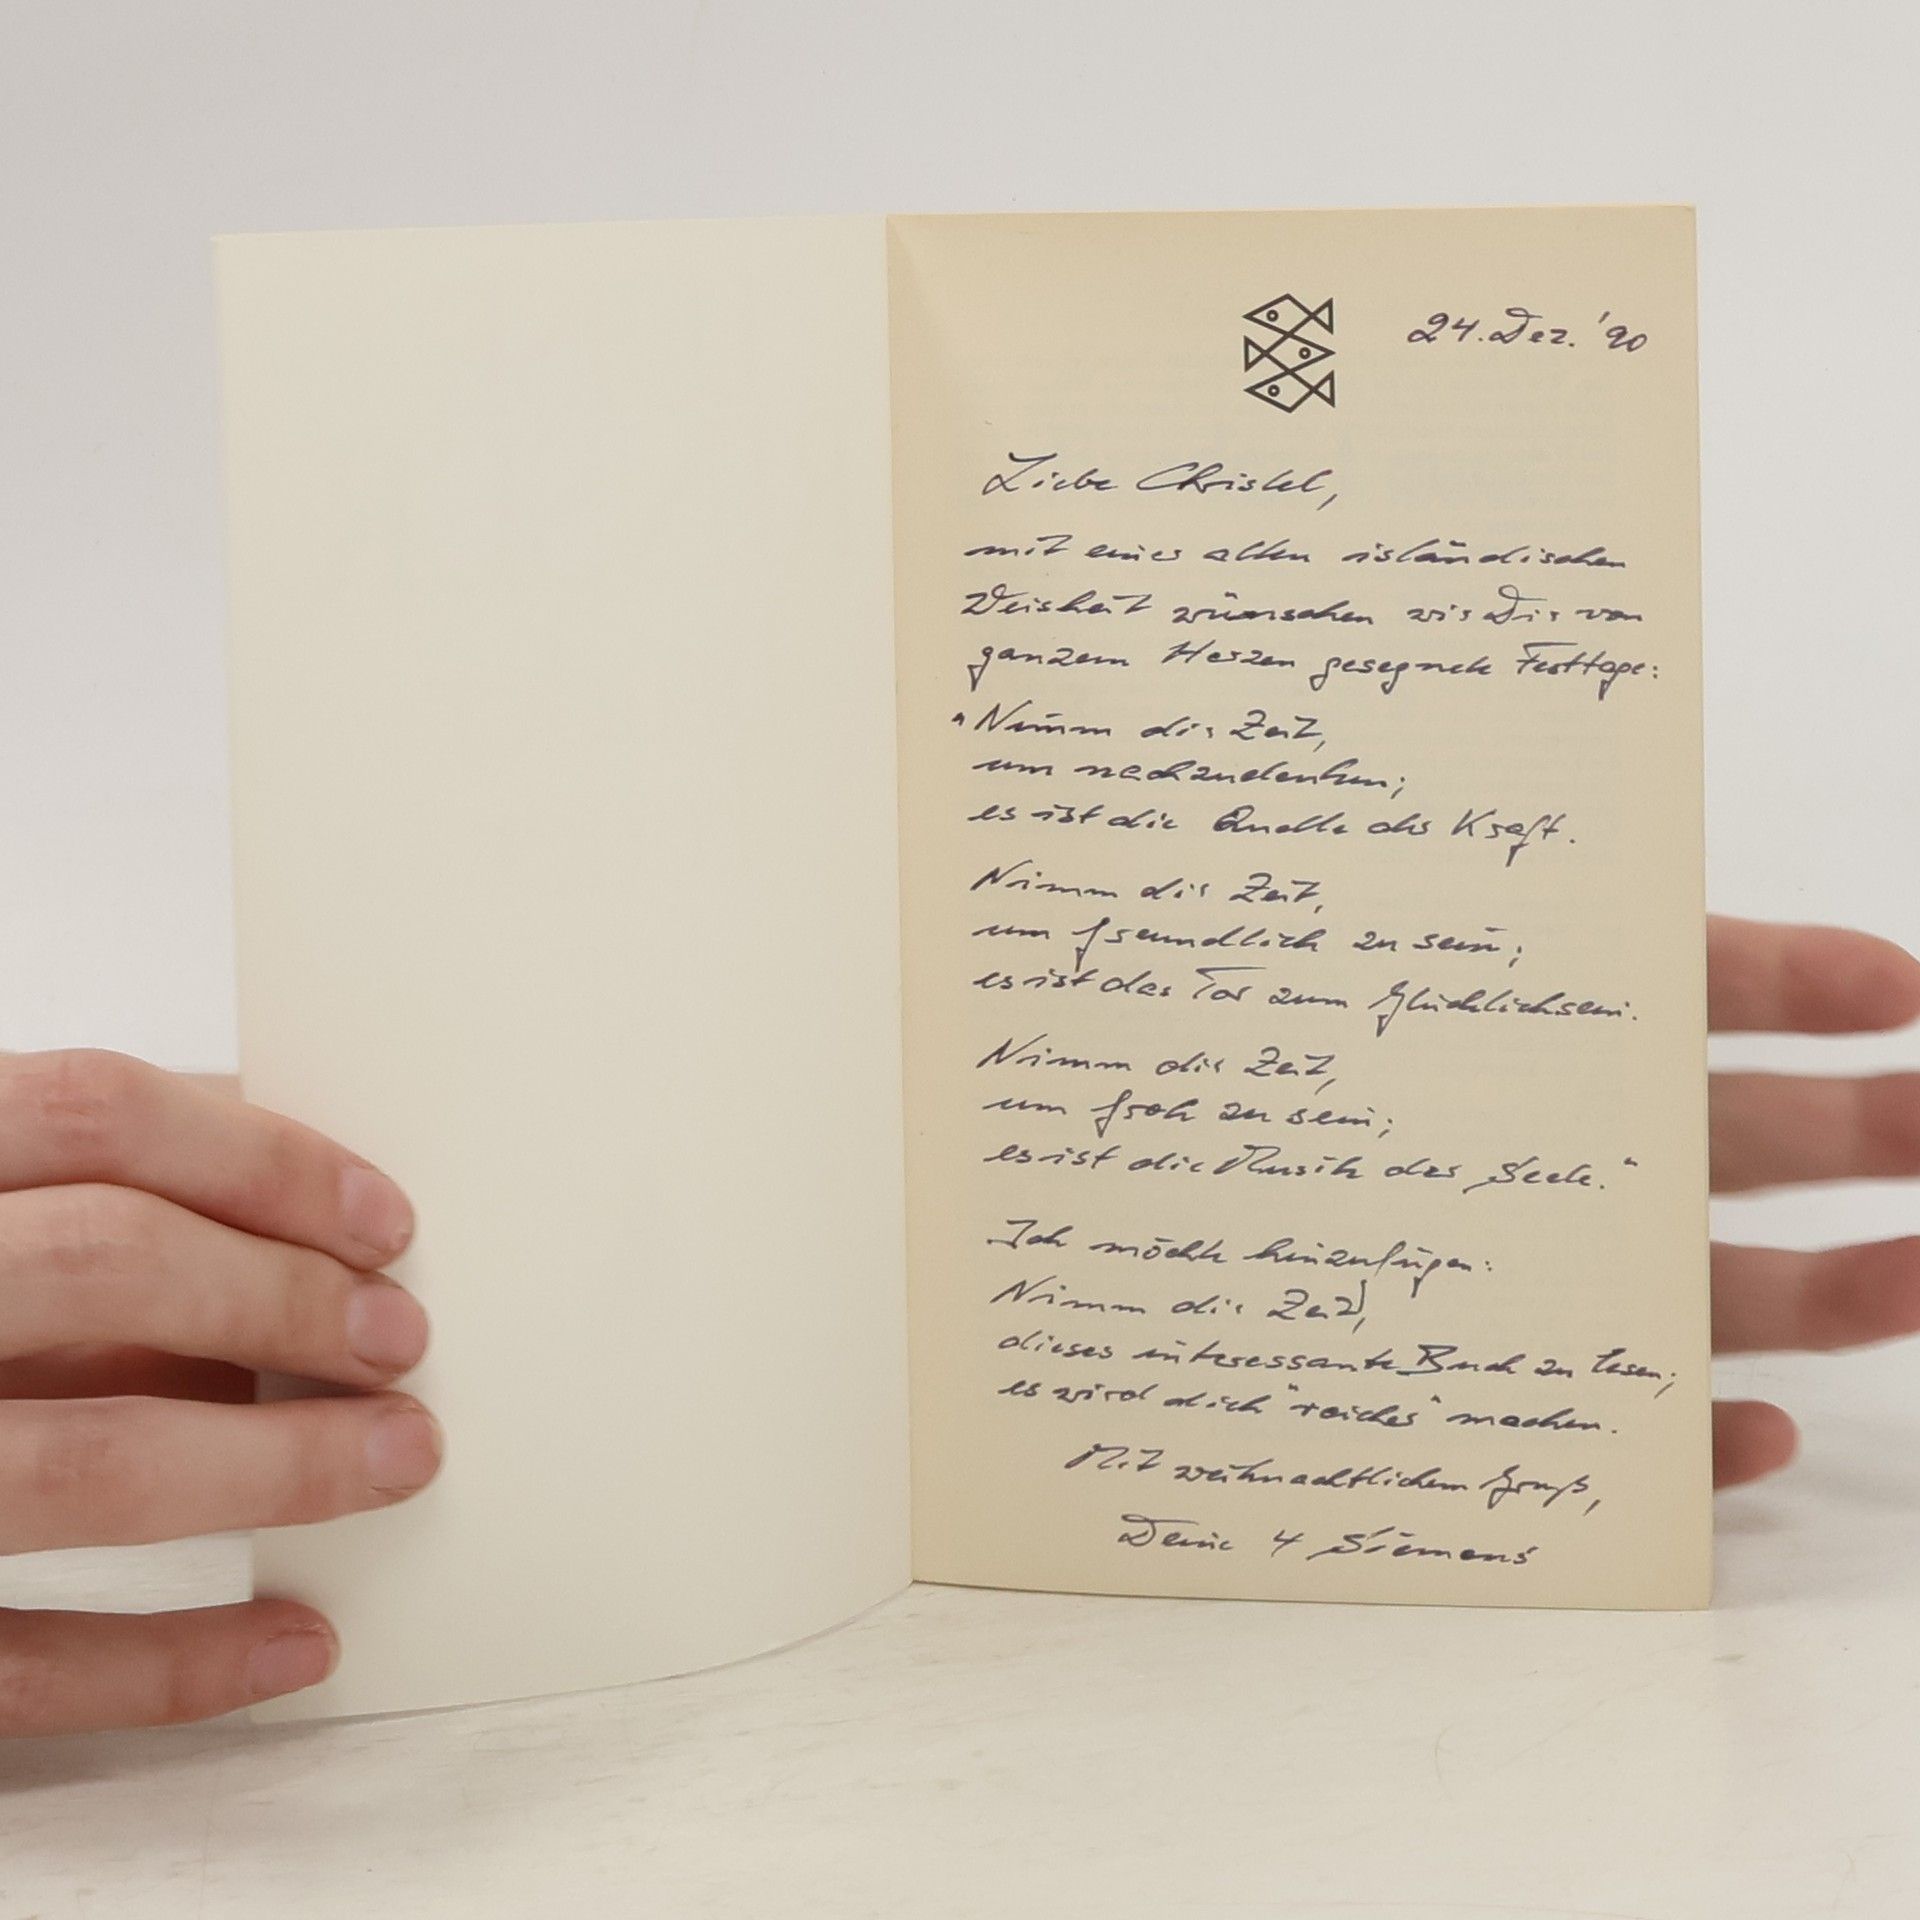 24. Dez. '90
Liebe Christel,
mit einer alten isländischen
Weisheit wünschen wir Dir von
ganzem Herzen gesegnete Festtage:
"Nimm dir Zeit,
um nachzudenken;
es ist die Quelle der Kraft.
Nimm dir Zeit,
um freundlich zu sein;
es ist das Tor zum Glücklichsein.
Nimm dir Zeit,
um froh zu sein;
es ist die Musik der Seele."
Ich möchte hinzufügen:
Nimm dir Zeit,
dieses interessante Buch zu lesen;
es wird dich "reicher" machen.
Mit weihnachtlichem Gruß,
Deine 4 Siemens